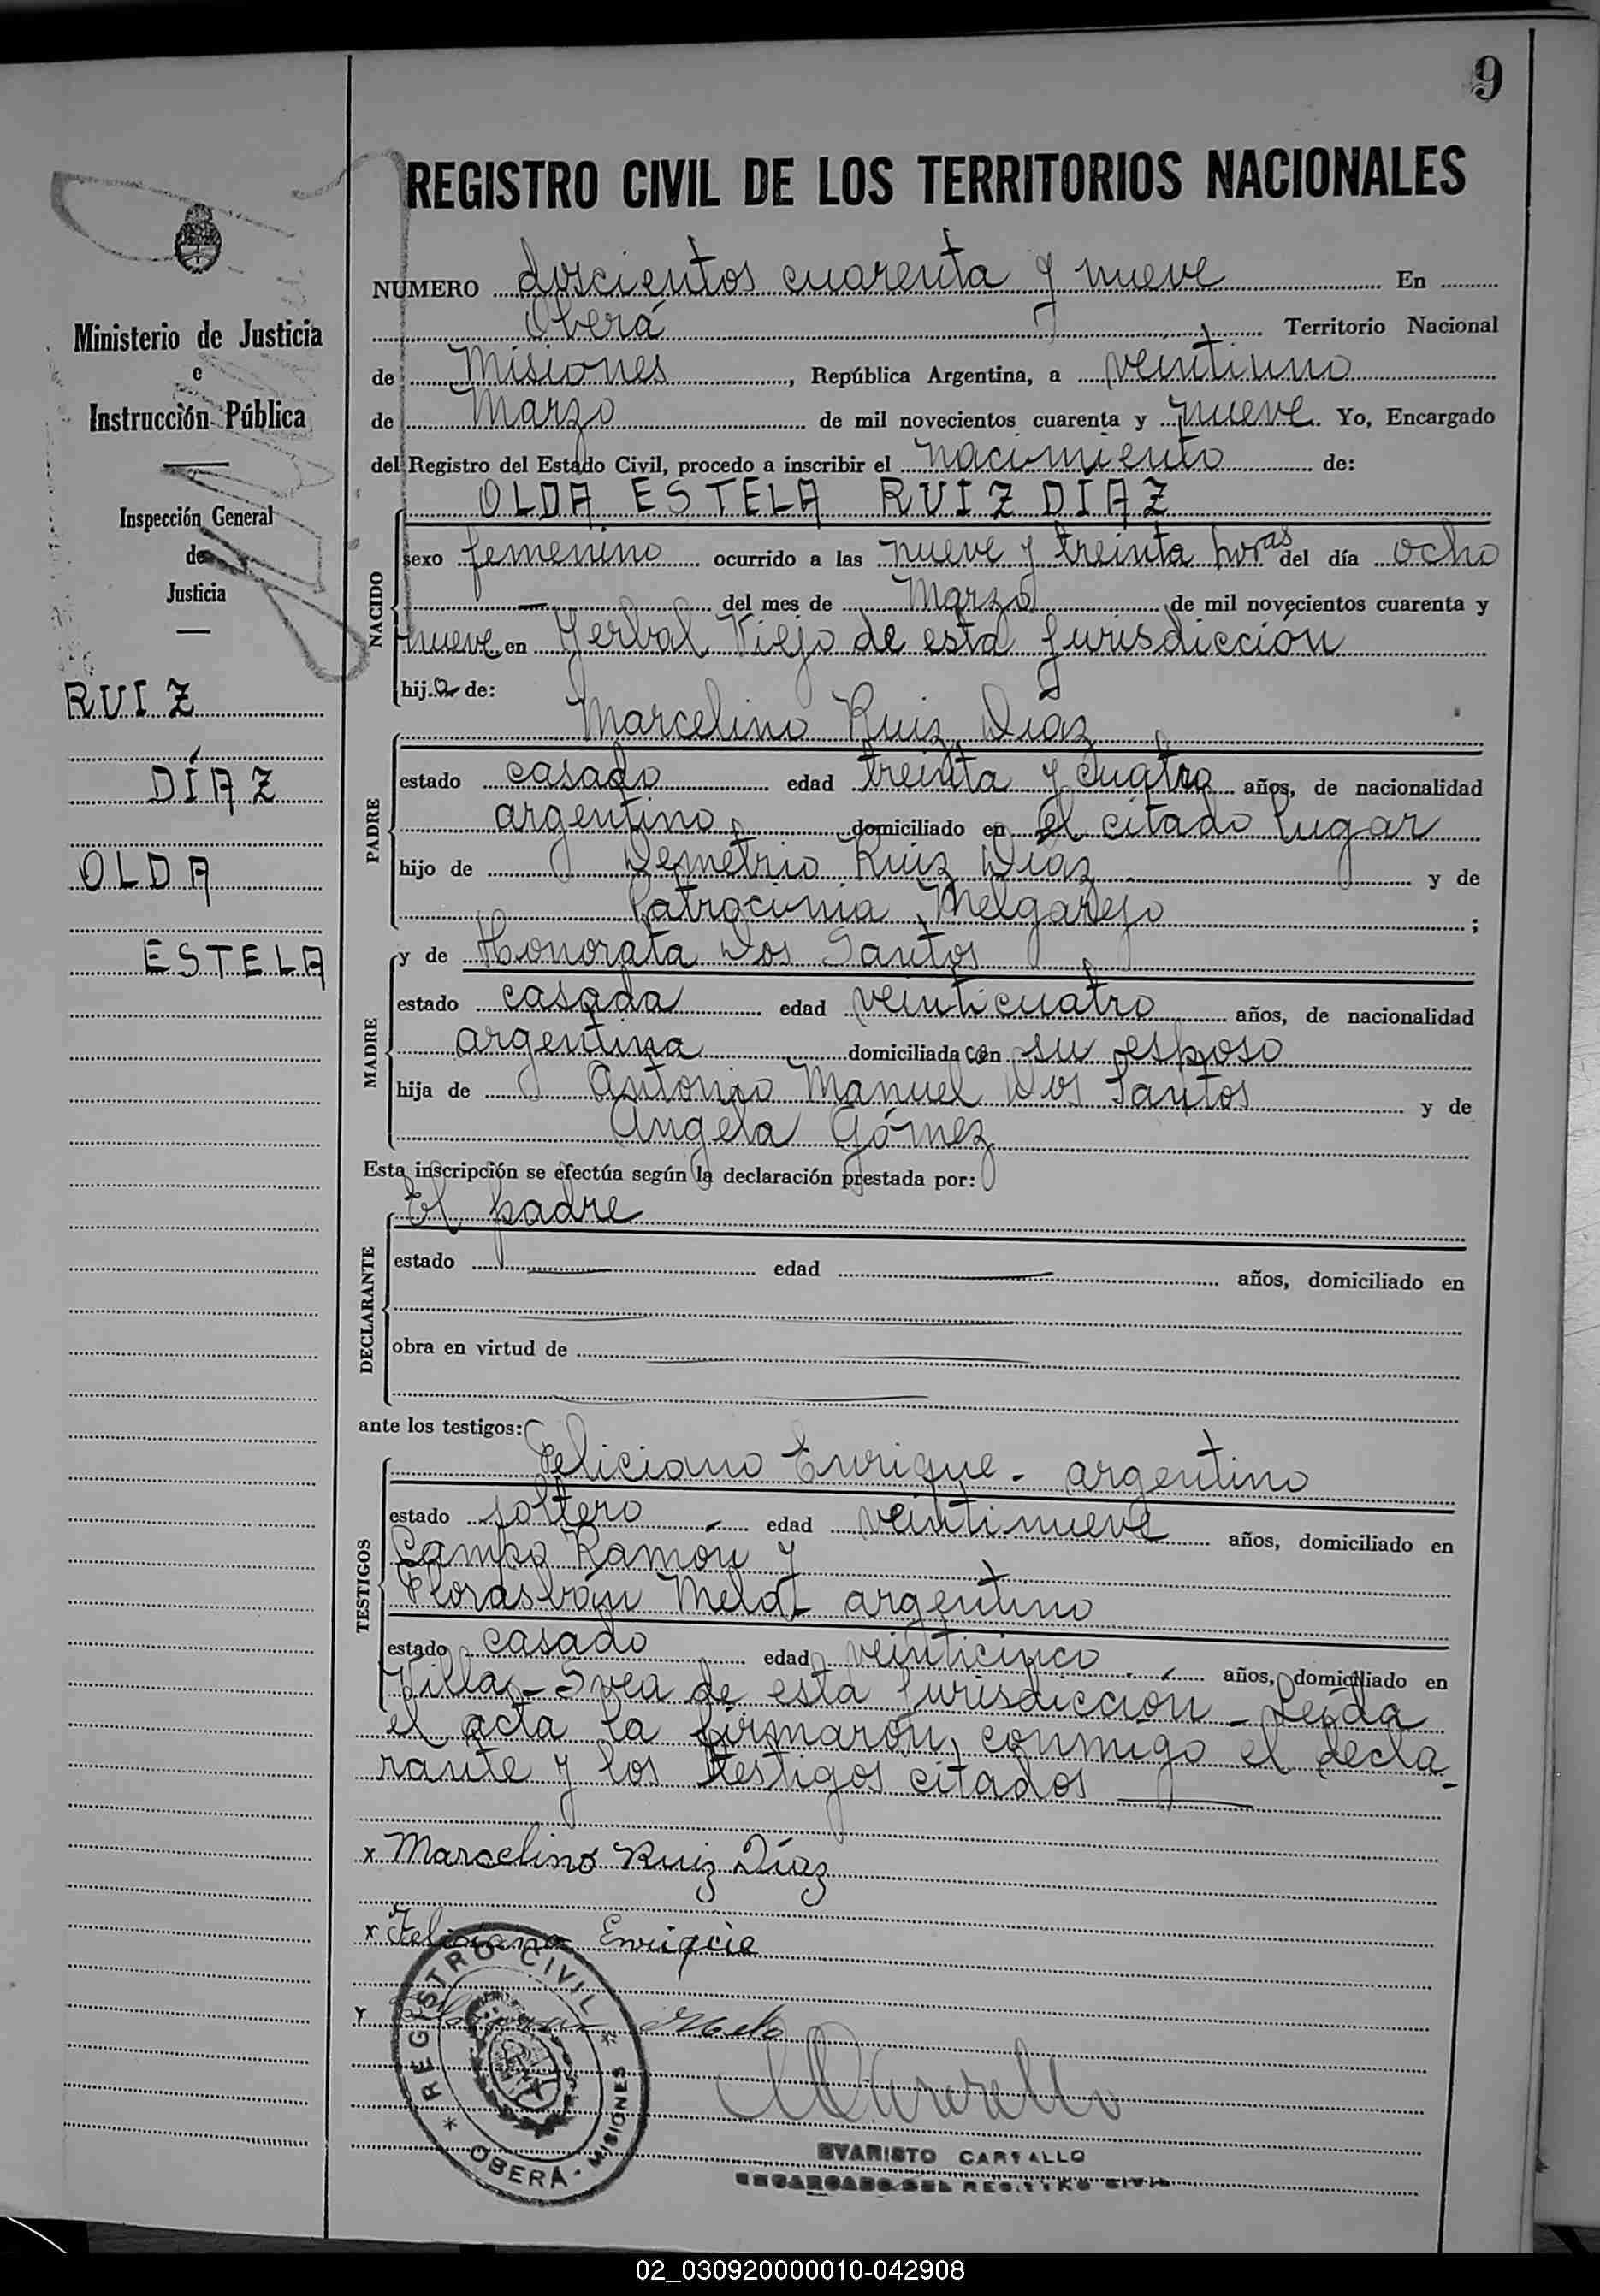 9
REGISTRO CIVIL DE LOS TERRITORIOS NACIONALES
Ministerio de Justicia
e
Instrucción Pública
Inspección General
de
Justicia
RUIZ
DÍAZ
OLDA
ESTELA
NUMERO doscientos cuarenta y nueve En
Oberá Territorio Nacional
de Misiones, República Argentina, a veintiuno
de Marzo de mil novecientos cuarenta y nueve. Yo, Encargado
del Registro del Estado Civil, procedo a inscribir el nacimiento de:
NACIDO
OLDA ESTELA RUIZ DIAZ
sexo femenino ocurrido a las nueve y treinta horas del día ocho
del mes de Marzo de mil novecientos cuarenta y
nueve en Yerbal Viejo de esta jurisdicción
hija de:
PADRE
Marcelino Ruiz Diaz
estado casado edad treinta y cuatro años, de nacionalidad
argentino domiciliado en el citado lugar
hijo de Demetrio Ruiz Diaz y de
Patrocinia Melgarejo ;
MADRE
y de Honorata Dos Santos
estado casada edad veinticuatro años, de nacionalidad
argentina domiciliada con su esposo
hija de Antonio Manuel Dos Santos y de
Angela Gómez
Esta inscripción se efectúa según la declaración prestada por:
DECLARANTE
El padre
estado edad años, domiciliado en
obra en virtud de
ante los testigos:
TESTIGOS
Feliciano Enrique - argentino
estado soltero edad veintinueve años, domiciliado en
Campo Ramón y
argentino
estado casado edad veinticinco años, domiciliado en
Villa - Svea de esta jurisdicción - Leída
el acta la firmaron conmigo el decla-
rante y los testigos citados
x Marcelino Ruiz Díaz
x Feliciano Enriqúe
REGISTRO CIVIL
* OBERÁ - MISIONES *
EVARISTO CARVALLO
ENCARGADO DEL REGISTRO CIVIL
02_030920000010-042908